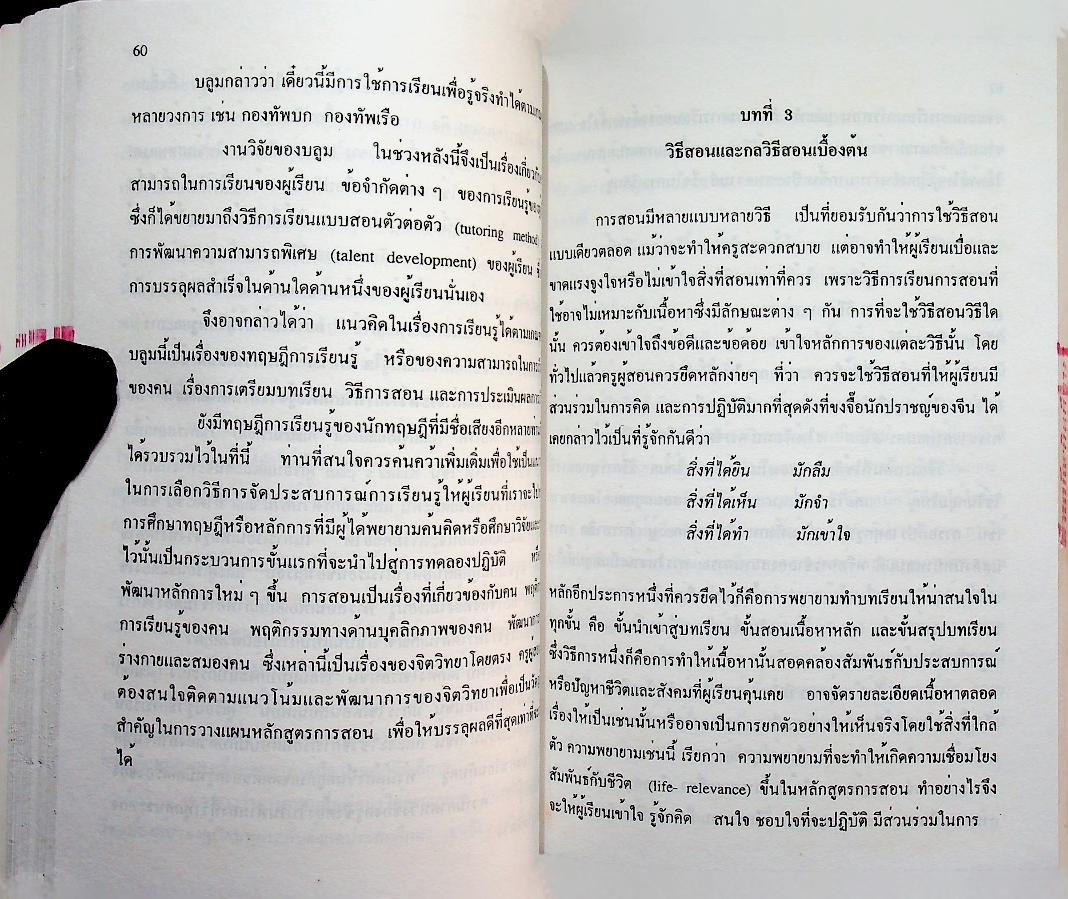 60
บลูมกล่าวว่า เดี๋ยวนี้มีการใช้การเรียนเพื่อรู้จริงทำได้ตามเกณ
หลายวงการ เช่น กองทัพบก กองทัพเรือ
งานวิจัยของบลูม ในช่วงหลังนี้จึงเป็นเรื่องเกี่ยวกับ
สามารถในการเรียนของผู้เรียน ข้อจำกัดต่าง ๆ ของการเรียนรู้ของ
ซึ่งก็ได้ขยายมาถึงวิธีการเรียนแบบสอนตัวต่อตัว (tutoring method)
การพัฒนาความสามารถพิเศษ (talent development) ของผู้เรียน
การบรรลุผลสำเร็จในด้านใดด้านหนึ่งของผู้เรียนนั่นเอง
จึงอาจกล่าวได้ว่า แนวคิดในเรื่องการเรียนรู้ได้ตามเกณ
บลูมนี้เป็นเรื่องของทฤษฎีการเรียนรู้ หรือของความสามารถในการ
ของคน เรื่องการเตรียมบทเรียน วิธีการสอน และการประเมินผลการ
ยังมีทฤษฎีการเรียนรู้ของนักทฤษฎีที่มีชื่อเสียงอีกหลายท่าน
ได้รวบรวมไว้ในที่นี้ ท่านที่สนใจควรค้นคว้าเพิ่มเติมเพื่อใช้เป็น
ในการเลือกวิธีการจัดประสบการณ์การเรียนรู้ให้ผู้เรียนที่เราจะ
การศึกษาทฤษฎีหรือหลักการที่มีผู้ได้พยายามค้นคิดหรือศึกษาวิจัย
ไว้นั้นเป็นกระบวนการขั้นแรกที่จะนำไปสู่การทดลองปฏิบัติ
พัฒนาหลักการใหม่ ๆ ขึ้น การสอนเป็นเรื่องที่เกี่ยวข้องกับคน
การเรียนรู้ของคน พฤติกรรมทางด้านบุคลิกภาพของคน
ร่างกายและสมองคน ซึ่งเหล่านี้เป็นเรื่องของจิตวิทยาโดยตรง
ต้องสนใจติดตามแนวโน้มและพัฒนาการของจิตวิทยาเพื่อเป็น
สำคัญในการวางแผนหลักสูตรการสอน เพื่อให้บรรลุผลดีที่สุดเท่าที่จะ
ได้
บทที่ 3
วิธีสอนและกลวิธีสอนเบื้องต้น
การสอนมีหลายแบบหลายวิธี เป็นที่ยอมรับกันว่าการใช้วิธีสอน
แบบเดียวตลอด แม้ว่าจะทำให้ครูสะดวกสบาย แต่อาจทำให้ผู้เรียนเบื่อและ
ขาดแรงจูงใจหรือไม่เข้าใจสิ่งที่สอนเท่าที่ควร เพราะวิธีการเรียนการสอนที่
ใช้อาจไม่เหมาะกับเนื้อหาซึ่งมีลักษณะต่าง ๆ กัน การที่จะใช้วิธีสอนวิธีใด
นั้น ควรต้องเข้าใจถึงข้อดีและข้อด้อย เข้าใจหลักการของแต่ละวิธีนั้น โดย
ทั่วไปแล้วครูผู้สอนควรยึดหลักง่ายๆ ที่ว่า ควรจะใช้วิธีสอนที่ให้ผู้เรียนมี
ส่วนร่วมในการคิด และการปฏิบัติมากที่สุดดังที่ขงจื๊อนักปราชญ์ของจีน ได้
เคยกล่าวไว้เป็นที่รู้จักกันดีว่า
สิ่งที่ได้ยิน มักลืม
สิ่งที่ได้เห็น มักจำ
สิ่งที่ได้ทำ มักเข้าใจ
หลักอีกประการหนึ่งที่ควรยึดไว้ก็คือการพยายามทำบทเรียนให้น่าสนใจใน
ทุกขั้น คือ ขั้นนำเข้าสู่บทเรียน ขั้นสอนเนื้อหาหลัก และขั้นสรุปบทเรียน
ซึ่งวิธีการหนึ่งก็คือการทำให้เนื้อหานั้นสอดคล้องสัมพันธ์กับประสบการณ์
หรือปัญหาชีวิตและสังคมที่ผู้เรียนคุ้นเคย อาจจัดรายละเอียดเนื้อหาตลอด
เรื่องให้เป็นเช่นนั้นหรืออาจเป็นการยกตัวอย่างให้เห็นจริงโดยใช้สิ่งที่ใกล้
ตัว ความพยายามเช่นนี้ เรียกว่า ความพยายามที่จะทำให้เกิดความเชื่อมโยง
สัมพันธ์กับชีวิต (life- relevance) ขึ้นในหลักสูตรการสอน ทำอย่างไรจึง
จะให้ผู้เรียนเข้าใจ รู้จักคิด สนใจ ชอบใจที่จะปฏิบัติ มีส่วนร่วมในการ